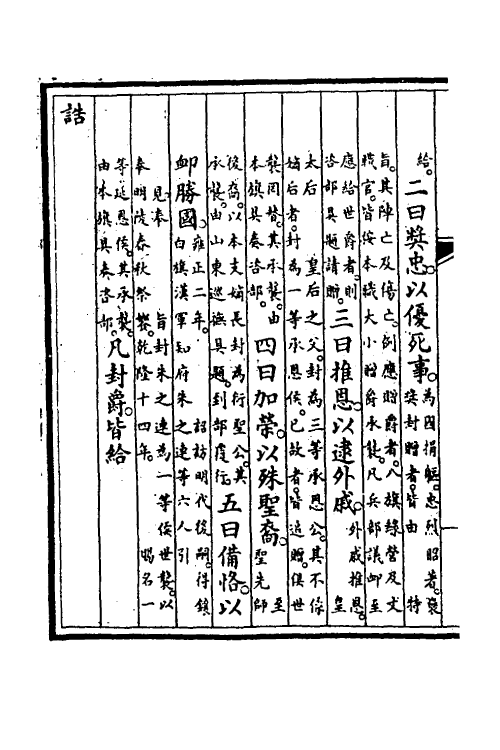 給。二曰獎忠。以優死事。為國捐軀。忠烈昭著。襃
獎封贈者。皆由 特
旨。其陣亡及傷亡。例應贈爵者。八旗綠營及文
職官。皆按本職大小贈爵承襲。凡兵部議卹至
應給世爵者。則
咨部具題請贈。三曰推恩。以逮外戚。外戚推恩。
皇
太后 皇后之父。封為三等承恩公。其不係
嫡后者。封為一等承恩侯。已故者。皆追贈。俱世
襲罔替。其承襲。由
本旗具奏咨部。四曰加榮。以殊聖裔。至
聖先師
後裔。以本支嫡長封為衍聖公。其
承襲。由山東巡撫具題。到部覆行。五曰備恪。以
卹勝國。雍正二年。 詔訪明代後嗣。得鑲
白旗漢軍知府朱之璉等六人引
見。奉 旨封朱之璉為一等侯世襲。以
奉明陵春秋祭祭。乾隆十四年。 賜名一
等延恩侯。其承襲。
由本旗具奏咨部。凡封爵。皆給
誥